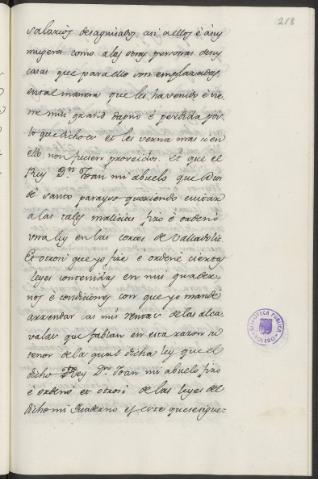 218
salarios desaguisados, asi a ellos è à ny
mugeres como a las otras personas de sus
casas que para ello son emplazados,
en tal manera que les ha venido è vie
ne mui grand dapno è perdida por
lo que dicho es et les verna mas si en
ello non fuesen proveidos. Et que el
Rey Dn. Joan mi abuelo que Dios
dè santo parayso queriendo evitar
a las tales malicias fizo è ordenò
una ley en las cortes de Valladolid.
Et otrosi que yo fize è ordenè ciertas
leyes contenidas en mis quader
nos è condiciones con que yo mandè
arrendar las mis rentas de las alca
valas que fablan en esta razon el
tenor de la qual dicha ley que el
dicho Rey Dn. Joan mi abuelo fizo
è ordenò et otrosi de las leyes del
dicho mi Quaderno es este que se sigue: